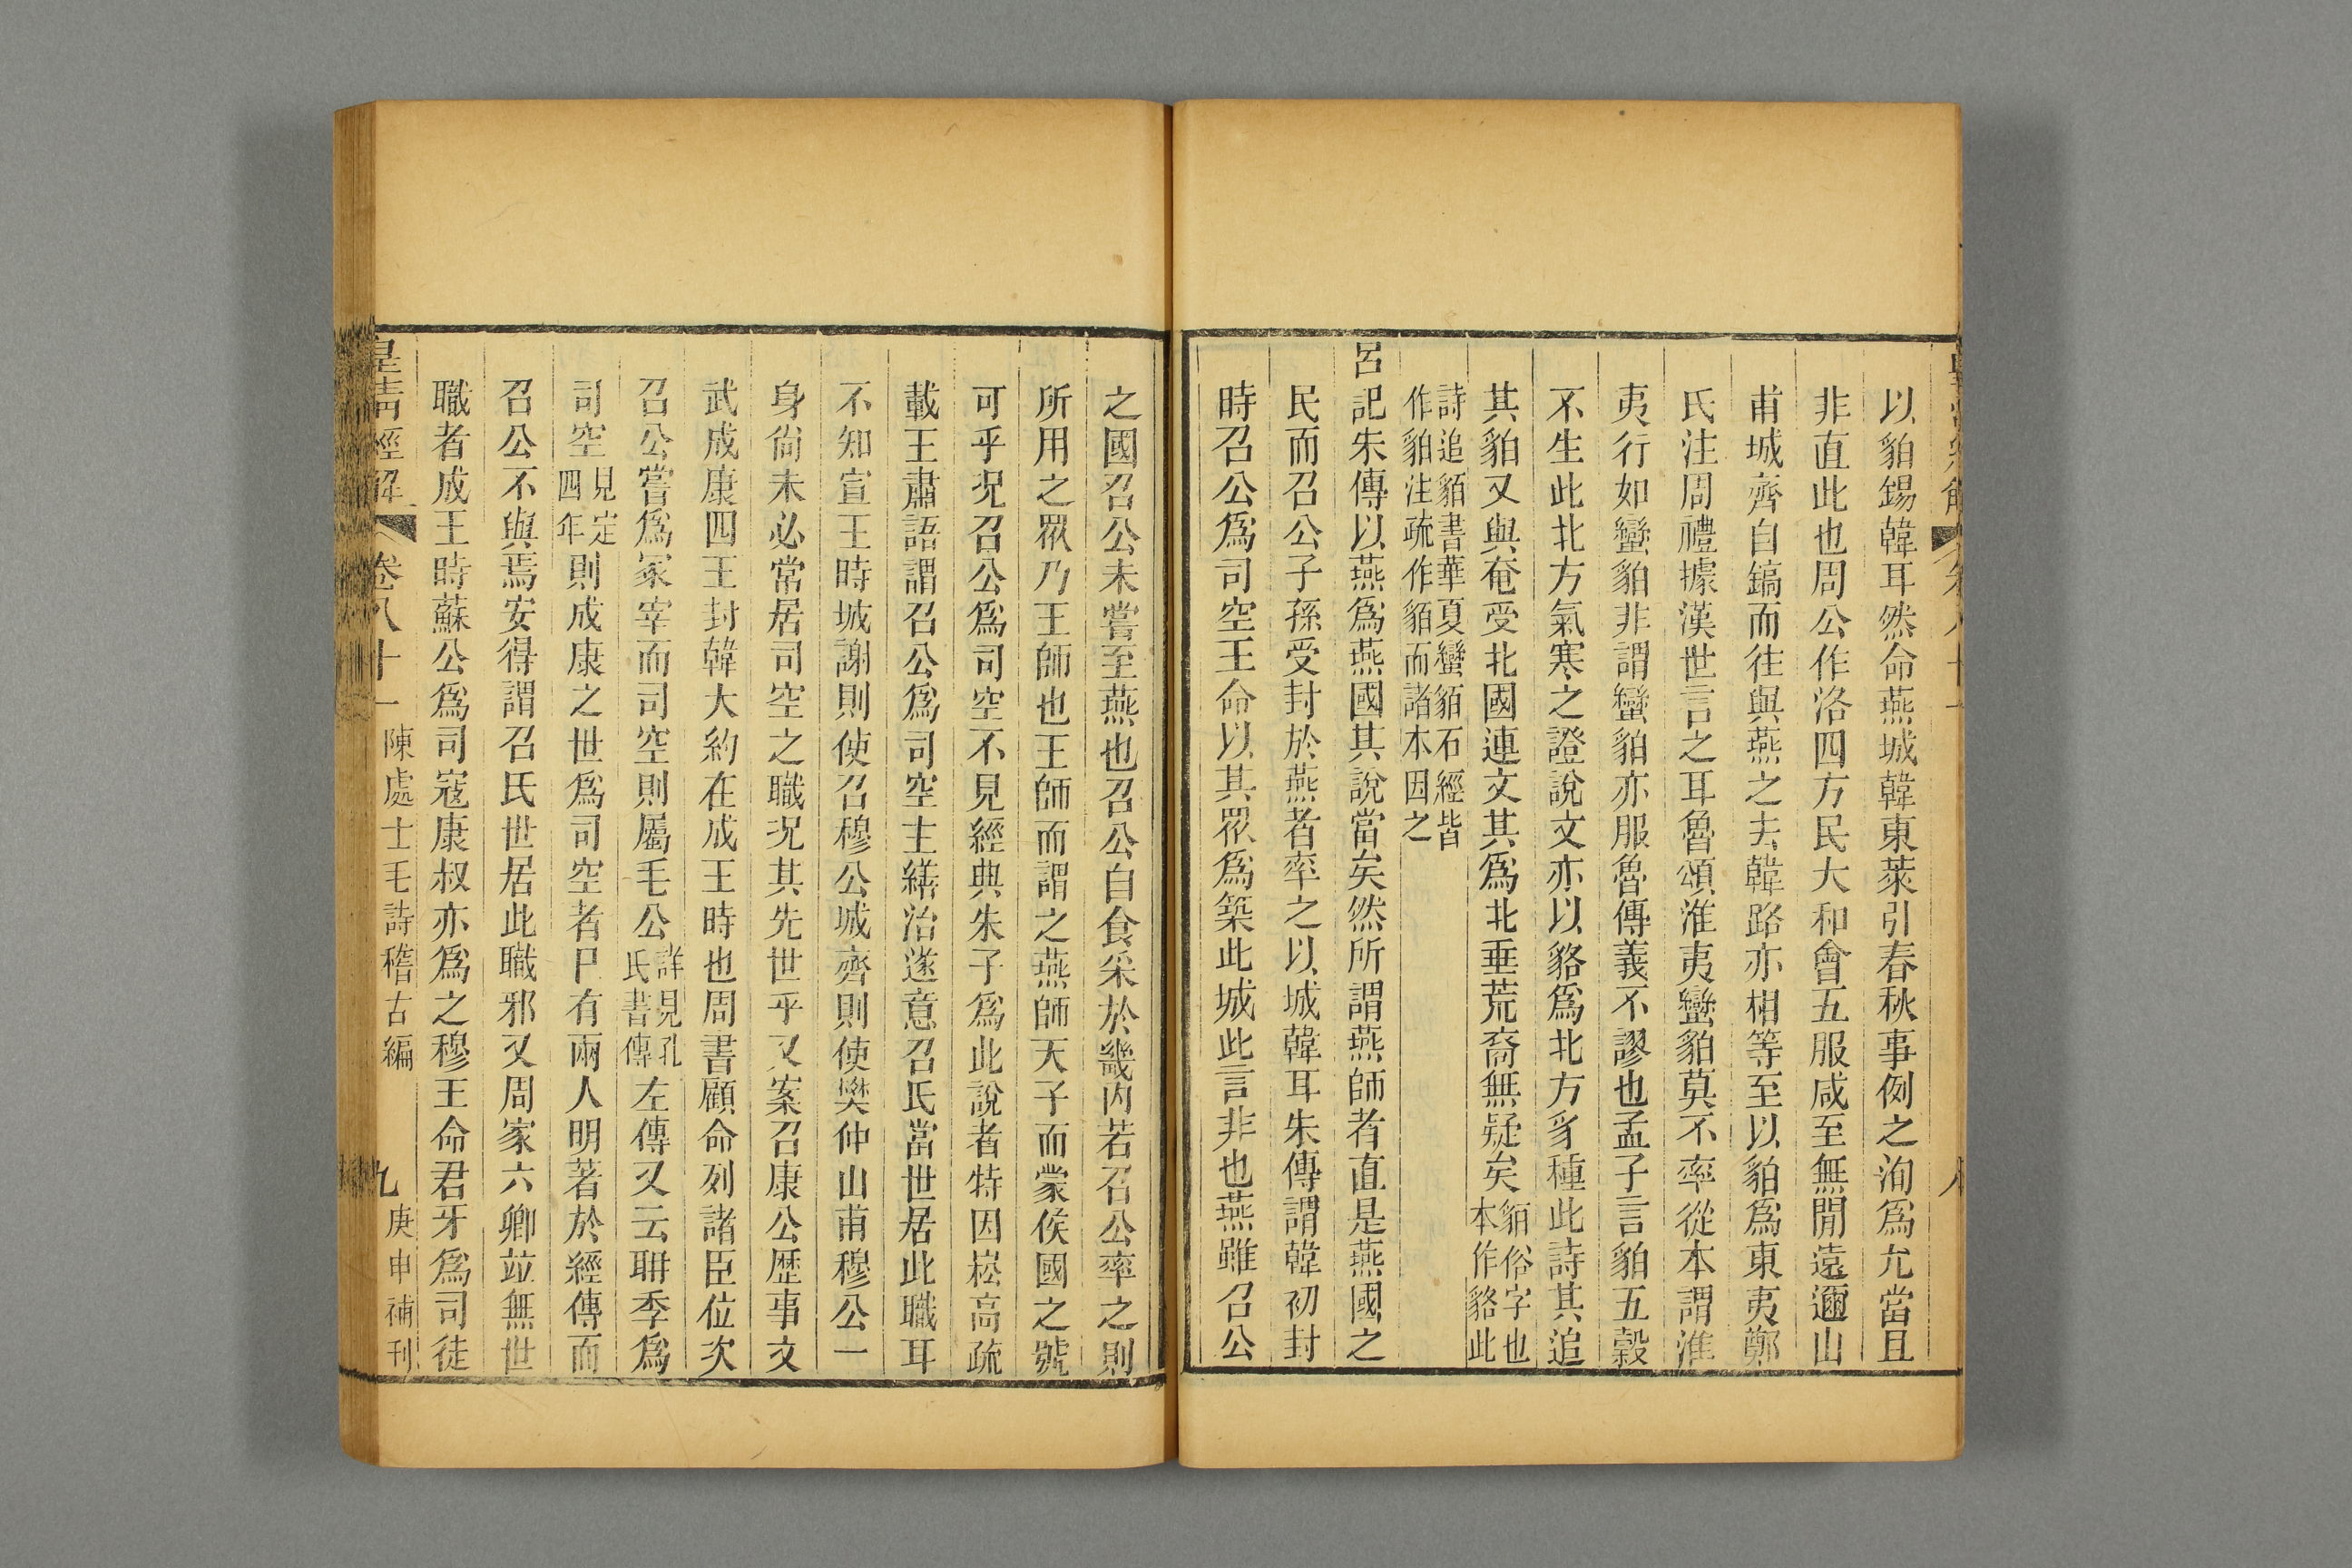 以貊錫韓耳然命燕城韓東萊引春秋事例之洵爲允當且
非直此也周公作洛四方民大和會五服咸至無閒遠邇山
甫城齊自鎬而徃與燕之去韓路亦相等至以貊爲東夷鄭
氏注周禮據漢世言之耳魯頌淮夷蠻貊莫不率從本謂淮
夷行如蠻貊非謂蠻貊亦服魯傳義不謬也孟子言貊五穀
不生此北方氣寒之證說文亦以貉爲北方豸種此詩其追
其貊又與奄受北國連文其爲北垂荒裔無疑矣貊俗字也本作貉此
詩追貊書華夏蠻貊石經皆
作貊注疏作貊而諸本因之
呂記朱傳以燕爲燕國其說當矣然所謂燕師者直是燕國之
民而召公子孫受封於燕者率之以城韓耳朱傳謂韓初封
時召公爲司空王命以其眾爲築此城此言非也燕雖召公
之國召公未嘗至燕也召公自食采於畿内若召公率之則
所用之眾乃王師也王師而謂之燕師天子而蒙侯國之號
可乎况召公爲司空不見經典朱子爲此說者特因崧高疏
載王肅語謂召公爲司空主繕治遂意召氏當世居此職耳
不知宣王時城謝則使召穆公城齊則使樊仲山甫穆公一
身尚未必常居司空之職况其先世乎又案召康公歷事文
武成康四王封韓大約在成王時也周書顧命列諸臣位次
召公嘗爲冢宰而司空則屬毛公詳見孔氏書傳左傳又云耼季爲
司空見定四年則成康之世爲司空者已有兩人明著於經傳而
召公不與焉安得謂召氏世居此職邪又周家六卿竝無世
職者成王時蘇公爲司寇康叔亦爲之穆王命君牙爲司徒
皇清經解 卷八十一 陳處士毛詩稽古編 九 庚申補刊